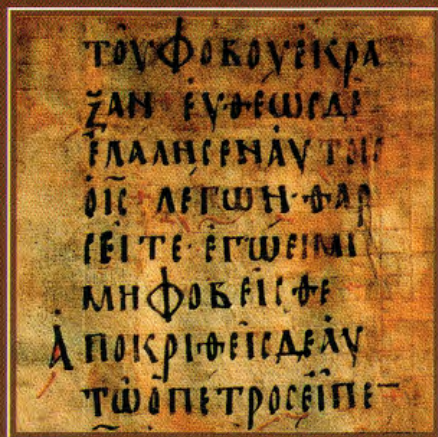 ΤΟΥΦΟΒΟΥΕΚΡΑ
ΞΑΝ ΕΥΘΕΩϹΔΕ
ΕΛΑΛΗϹΕΝΑΥΤΟΙϹ
ΟΙϹ ΛΕΓΩΝ·ΘΑΡ
ϹΕΙΤΕ·ΕΓΩΕΙΜΙ
ΜΗΦΟΒΕΙϹΘΕ
ΑΠΟΚΡΙΘΕΙϹΔΕΑΥ
ΤΩΟΠΕΤΡΟϹΕΙΠΕ¯